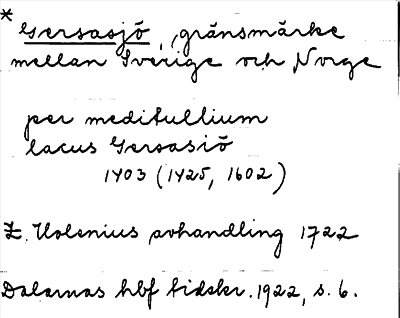 * Gersasjö, gränsmärke
mellan Sverige och Norge
per meditullium
lacus Gersasiö
1403 (1425, 1602)
E. Holenius avhandling 1722
Dalarnas hbf tidskr. 1922, s. 6.